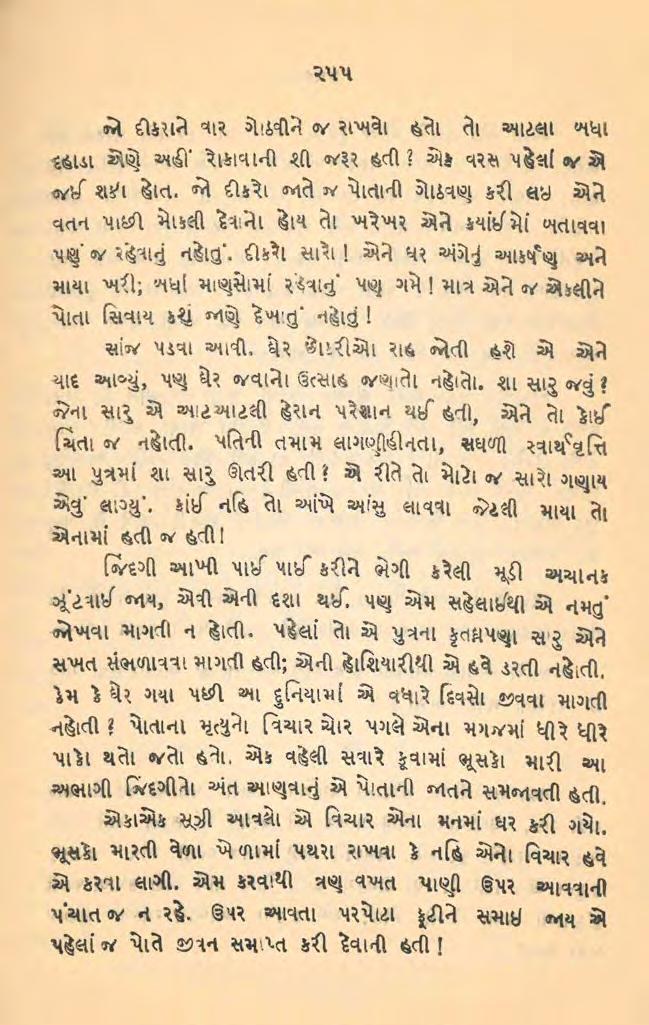 ૨૫૫
જો દીકરાને વાર ગોઠવીને જ રાખવો હતો તો આટલા બધા
દહાડા એણે અહીં રોકાવાની શી જરૂર હતી? એક વરસ પહેલાં જ એ
જઈ શકી હોત. જો દીકરો જાતે જ પોતાની ગોઠવણ કરી લઇ એને
વતન પાછી મોકલી દેવાનો હોય તો ખરેખર એને કયાંઈ મોં બતાવવા
પણું જ રહેવાનું નહોતું. દીકરો સારો! એને ઘર અંગેનું આકર્ષણ અને
માયા ખરી; બધાં માણસોમાં રહેવાનું પણ ગમે! માત્ર એને જ એકલીને
પોતા સિવાય કશું જાણે દેખાતું નહોતું!
સાંજ પડવા આવી. ઘેર છોકરીઓ રાહ જોતી હશે એ એને
યાદ આવ્યું, પણ ઘેર જવાનો ઉત્સાહ જણાતો નહોતો. શા સારુ જવું?
જેના સારુ એ આટઆટલી હેરાન પરેશાન થઈ હતી, એને તો કોઈ
ચિંતા જ નહોતી. પતિની તમામ લાગણીહીનતા, સઘળી સ્વાર્થવૃત્તિ
આ પુત્રમાં શા સારુ ઊતરી હતી? એ રીતે તો મોટો જ સારો ગણાય
એવું લાગ્યું. કાંઈ નહિ તો આંખે આંસુ લાવવા જેટલી માયા તો
એનામાં હતી જ હતી!
જિંદગી આખી પાઈ પાઈ કરીને ભેગી કરેલી મૂડી અચાનક
ઝૂંટવાઈ જાય, એવી એની દશા થઈ. પણ એમ સહેલાઈથી એ નમતું
જોખવા માગતી ન હોતી. પહેલાં તો એ પુત્રના કૃતઘ્નપણા સારુ એને
સખત સંભળાવવા માગતી હતી; એની હોશિયારીથી એ હવે ડરતી નહોતી.
કેમ કે ઘેર ગયા પછી આ દુનિયામાં એ વધારે દિવસો જીવવા માગતી
નહોતી? પોતાના મૃત્યુનો વિચાર ચોર પગલે એના મગજમાં ધીરે ધીરે
પાકો થતો જતો હતો. એક વહેલી સવારે કૂવામાં ભૂસકો મારી આ
અભાગી જિંદગીનો અંત આણવાનું એ પોતાની જાતને સમજાવતી હતી.
એકાએક સૂઝી આવલો એ વિચાર એના મનમાં ઘર કરી ગયો.
ભૂસકો મારતી વેળા ખોળામાં પથરા રાખવા કે નહિ એનો વિચાર હવે
એ કરવા લાગી. એમ કરવાથી ત્રણ વખત પાણી ઉપર આવવાની
પંચાત જ ન રહે. ઉપર આવતા પરપોટા ફૂટીને સમાઇ જાય એ
પહેલાં જ પોતે જીવન સમાપ્ત કરી દેવાની હતી!